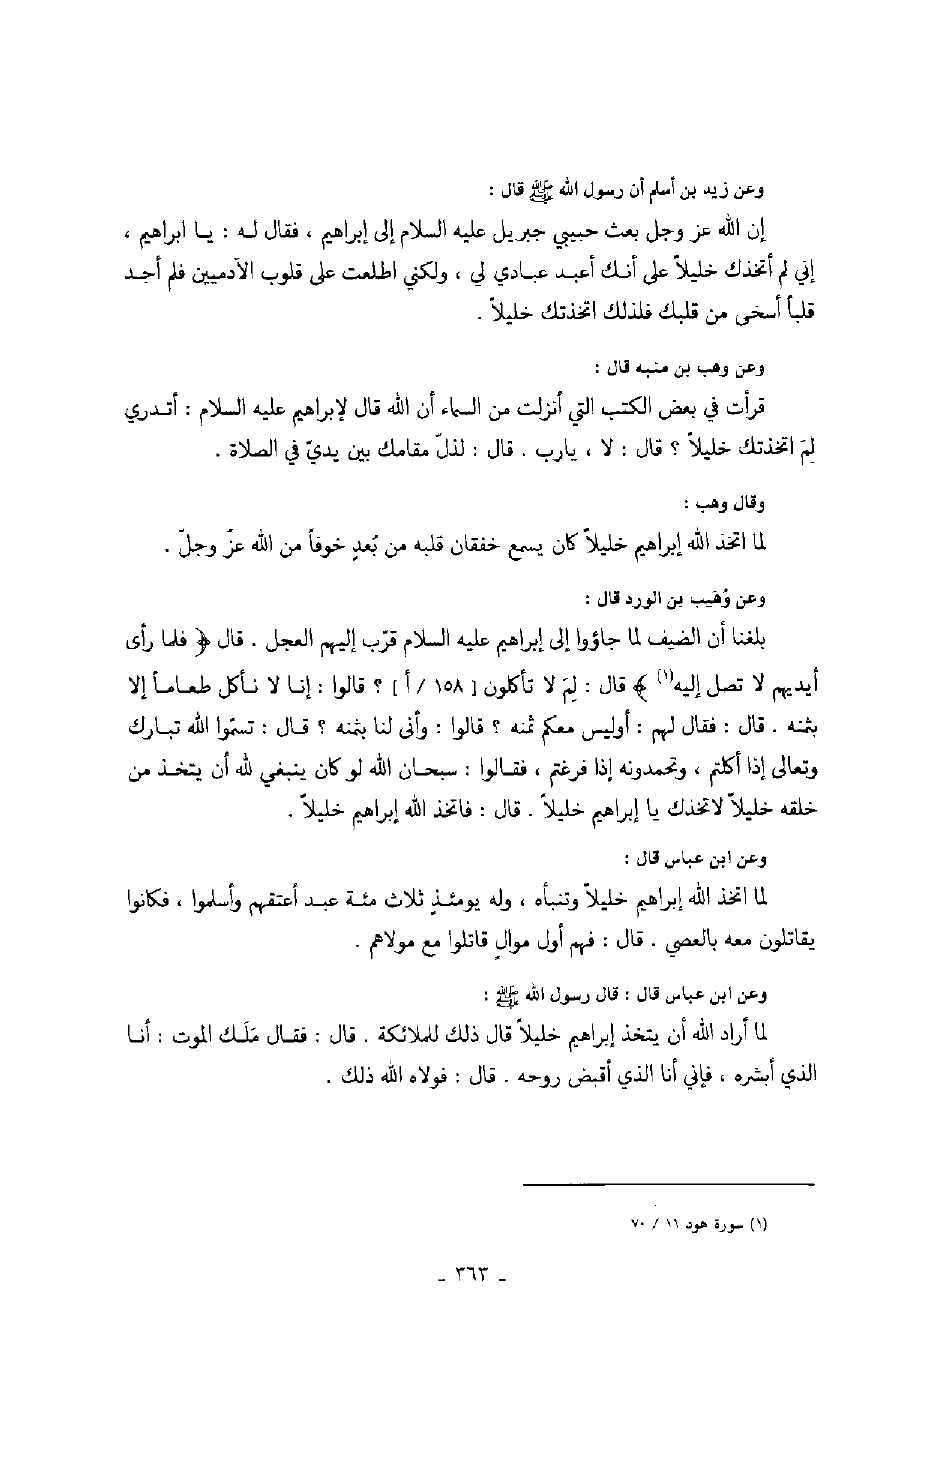 وعن زيد بن أسلم أن رسول الله ﷺ قال :
إن الله عز وجل بعث حبيبي جبريل عليه السلام إلى إبراهيم ، فقال له : يا ابراهيم ،
إني لم أتخذك خليلاً على أنك أعبد عبادي لي ، ولكني اطلعت على قلوب الآدميين فلم أجد
قلباً أسخى من قلبك فلذلك اتخذتك خليلاً .
وعن وهب بن منبه قال :
قرأت في بعض الكتب التي أنزلت من السماء أن الله قال لإبراهيم عليه السلام : أتدري
لِمَ اتخذتك خليلاً ؟ قال : لا ، يارب . قال : لذلّ مقامك بين يديّ في الصلاة .
وقال وهب :
لما اتخذ الله إبراهيم خليلاً كان يسمع خفقان قلبه من بُعدٍ خوفاً من الله عزّ وجلّ .
وعن وُهَيب بن الورد قال :
بلغنا أن الضيف لما جاؤوا إلى إبراهيم عليه السلام قرّب إليهم العجل . قال ﴿ فلما رأى
أيديهم لا تصل إليه(١) ﴾ قال : لِمَ لا تأكلون [ ١٥٨ / أ ] ؟ قالوا : إنا لا نأكل طعاماً إلا
بثمنه . قال : فقال لهم : أوليس معكم ثمنه ؟ قالوا : وأنى لنا بثمنه ؟ قال : تسمّوا الله تبارك
وتعالى إذا أكلتم ، وتحمدونه إذا فرغتم ، فقالوا : سبحان الله لو كان ينبغي لله أن يتخذ من
خلقه خليلاً لاتخذك يا إبراهيم خليلاً . قال : فاتخذ الله إبراهيم خليلاً .
وعن ابن عباس قال :
لما اتخذ الله إبراهيم خليلاً وتنبأه ، وله يومئذٍ ثلاث مئة عبد أعتقهم وأسلموا ، فكانوا
يقاتلون معه بالعصي . قال : فهم أول موالٍ قاتلوا مع مولاهم .
وعن ابن عباس قال : قال رسول الله ﷺ :
لما أراد الله أن يتخذ إبراهيم خليلاً قال ذلك للملائكة . قال : فقال مَلَك الموت : أنا
الذي أبشره ، فإني أنا الذي أقبض روحه . قال : فولاه الله ذلك .
(١) سورة هود ١١ / ٧٠
- ٣٦٣ -